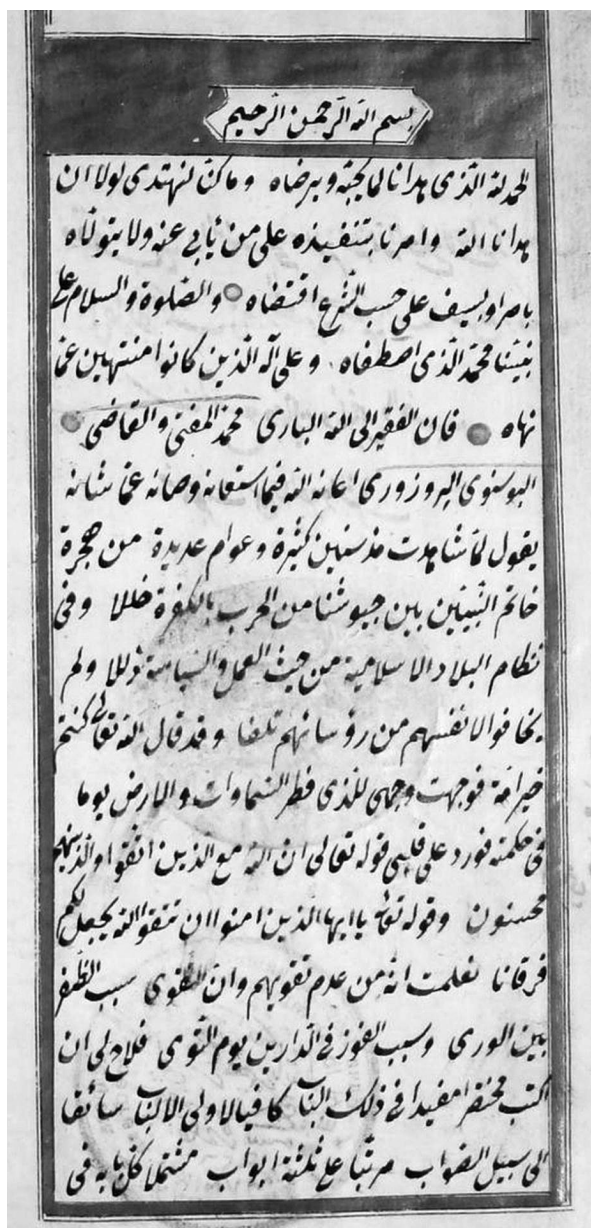 بسم الله الرحمن الرحيم
الحمد لله الذى هدانا لما يحبه ويرضاه وما كنا لنهتدى لولا ان
هدانا الله وامرنا بتنفيذه على من يأبى عنه ولا يتولاه
بامر او بسيف على حسب الشرع اقتضاه والصلوة والسلام على
نبينا محمد الذى اصطفاه وعلى آله الذين كانوا منتهين عما
نهاه فان الفقير الى الله البارى محمد المفتى والقاضى
البوسنوى البروزورى اعانه الله فيما استعانه وصانه عما شانه
يقول لما شاهدت مذ سنين كثيرة وعوام عديدة من هجرة
خاتم النبيين بين جيوشنا من الحرب بالكفرة خللا وفى
نظام البلاد الاسلامية من حيث العمل والسياسة ذللا ولم
يخافوا لانفسهم من رؤسائهم تلفا وقد قال الله تعالى كنتم
خير امة فوجهت وجهى للذى فطر السماوات والارض يوما
فى حكمته فورد على قلبى قوله تعالى ان الله مع الذين اتقوا والذين هم
محسنون وقوله تعالى يا ايها الذين امنوا ان تتقوا الله يجعل لكم
فرقانا فعلمت انه من عدم تقويهم وان التقوى سبب الظفر
بين الورى وسبب الفوز فى الدارين يوم التوى فلاح لى ان
اكتب مختصرا مفيدا فى ذلك الباب كافيا لاولى الالباب سائقا
الى سبيل الصواب مرتبا على ثلثة ابواب مشتملا كل بابه فى